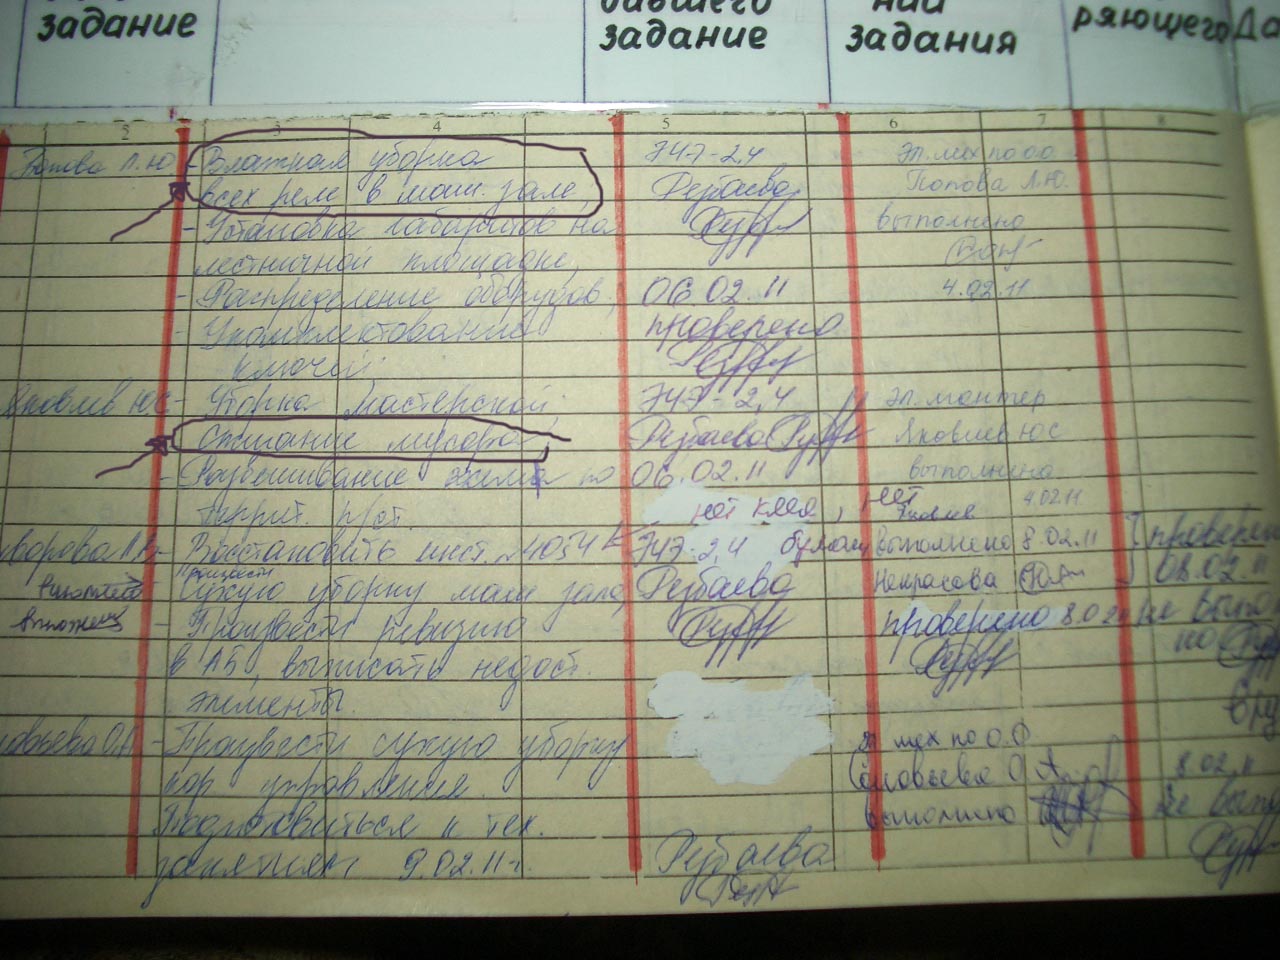 задание
бавшего
задание
нии
задания
ряющего
Да
2
3
4
5
6
7
8
Попова Л.Ю
Влажная уборка
всех реле в маш. зале,
- Установка габаритов на
лестничной площадке,
- Распределение оборудов.
- Укомплектование
ключей
ЭЧЭ-2,4
Рербаева
06.02.11
проверено
Эл. мех по о.о
Попова Л.Ю.
выполнено
4.02.11
Яковлев ЮС
- Уборка мастерской,
Сжигание мусора
- Развешивание по
террит. п/ст.
ЭЧЭ-2,4
Рербаева
06.02.11
нет клея, нет
бумаги
эл. монтер
Яковлев ЮС
выполнено
Яковлев 4.02.11
Восстановить инст. №4054
Произвести
сухую уборку маш зала,
- Произвести ревизию
в АБ, выписать недост.
элементы.
ЭЧЭ-2,4
Рербаева
выполнено 8.02.11
Некрасова
проверено 8.02
проверено
08.02.11
не выпол
но
- Произвести сухую уборку
кор управления.
Подготовиться к тех.
занятиям 9.02.11г.
Рербаева
эл мех по О.О
Соловьева О
выполнено
8.02.11